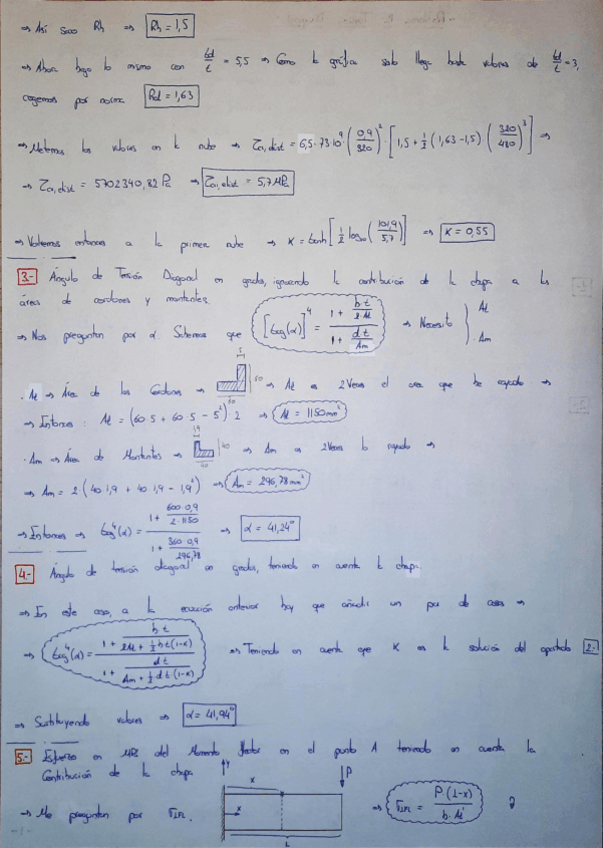 ⇒ Así saco Rh ⇒ Rh = 1,5
⇒ Ahora hago lo mismo con td/t = 5,5 ⇒ Como la gráfica solo llega hasta valores de td/t = 3,
cogemos por norma Rd = 1,63
⇒ Metemos los valores en la ⇒ τcr,dist = 6,5·73·10⁹ (0,9/320)² · [1,5 + 1/2 (1,63-1,5) · (320/480)³] ⇒
⇒ τcr,dist = 5702340,82 Pa ⇒ τcr,dist = 5,7 MPa
⇒ Volvemos entonces a la primera ⇒ K = tanh [1/2 log₁₀ (101,9/5,7)] ⇒ K = 0,55
3.- Ángulo de Tensión Diagonal en grados, ignorando la contribución de la chapa a las
áreas de cordones y montantes.
⇒ Nos preguntan por α. Sabemos que [tag(α)]⁴ = (1 + h·t/2·At)/(1 + d·t/Am) ⇒ Necesito } At
Am
· At ⇒ Área de los Cordones ⇒ 5 60 60 ⇒ At es 2 Veces el area que he ⇒
⇒ Entonces: At = (60·5 + 60·5 - 5²) 2 ⇒ At = 1150 mm²
· Am ⇒ Área de Montantes ⇒ 1,9 40 40 ⇒ Am es 2 Veces lo ⇒
⇒ Am = 2 (40·1,9 + 40·1,9 - 1,9²) ⇒ Am = 296,78 mm²
⇒ Entonces ⇒ tag⁴(α) = (1 + 600·0,9/2·1150)/(1 + 360·0,9/296,78) ⇒ α = 41,24°
4.- Ángulo de tensión diagonal en grados, teniendo en cuenta la chapa.
⇒ En este caso, a la ecuación anterior hay que añadir un par de cosas ⇒
⇒ tag⁴(α) = (1 + h·t/(2At + 1/2 h t (1-K)))/(1 + d·t/(Am + 1/2 d t (1-K))) ⇒ Teniendo en cuenta que K es la solución del apartado 2.-
⇒ Sustituyendo valores ⇒ α = 41,94°
5.- Esfuerzo en MPa del Momento flector en el punto A teniendo en cuenta la
Contribución de la chapa
⇒ Me preguntan por y x x P L ⇒ = P·(L-x)/h·At'